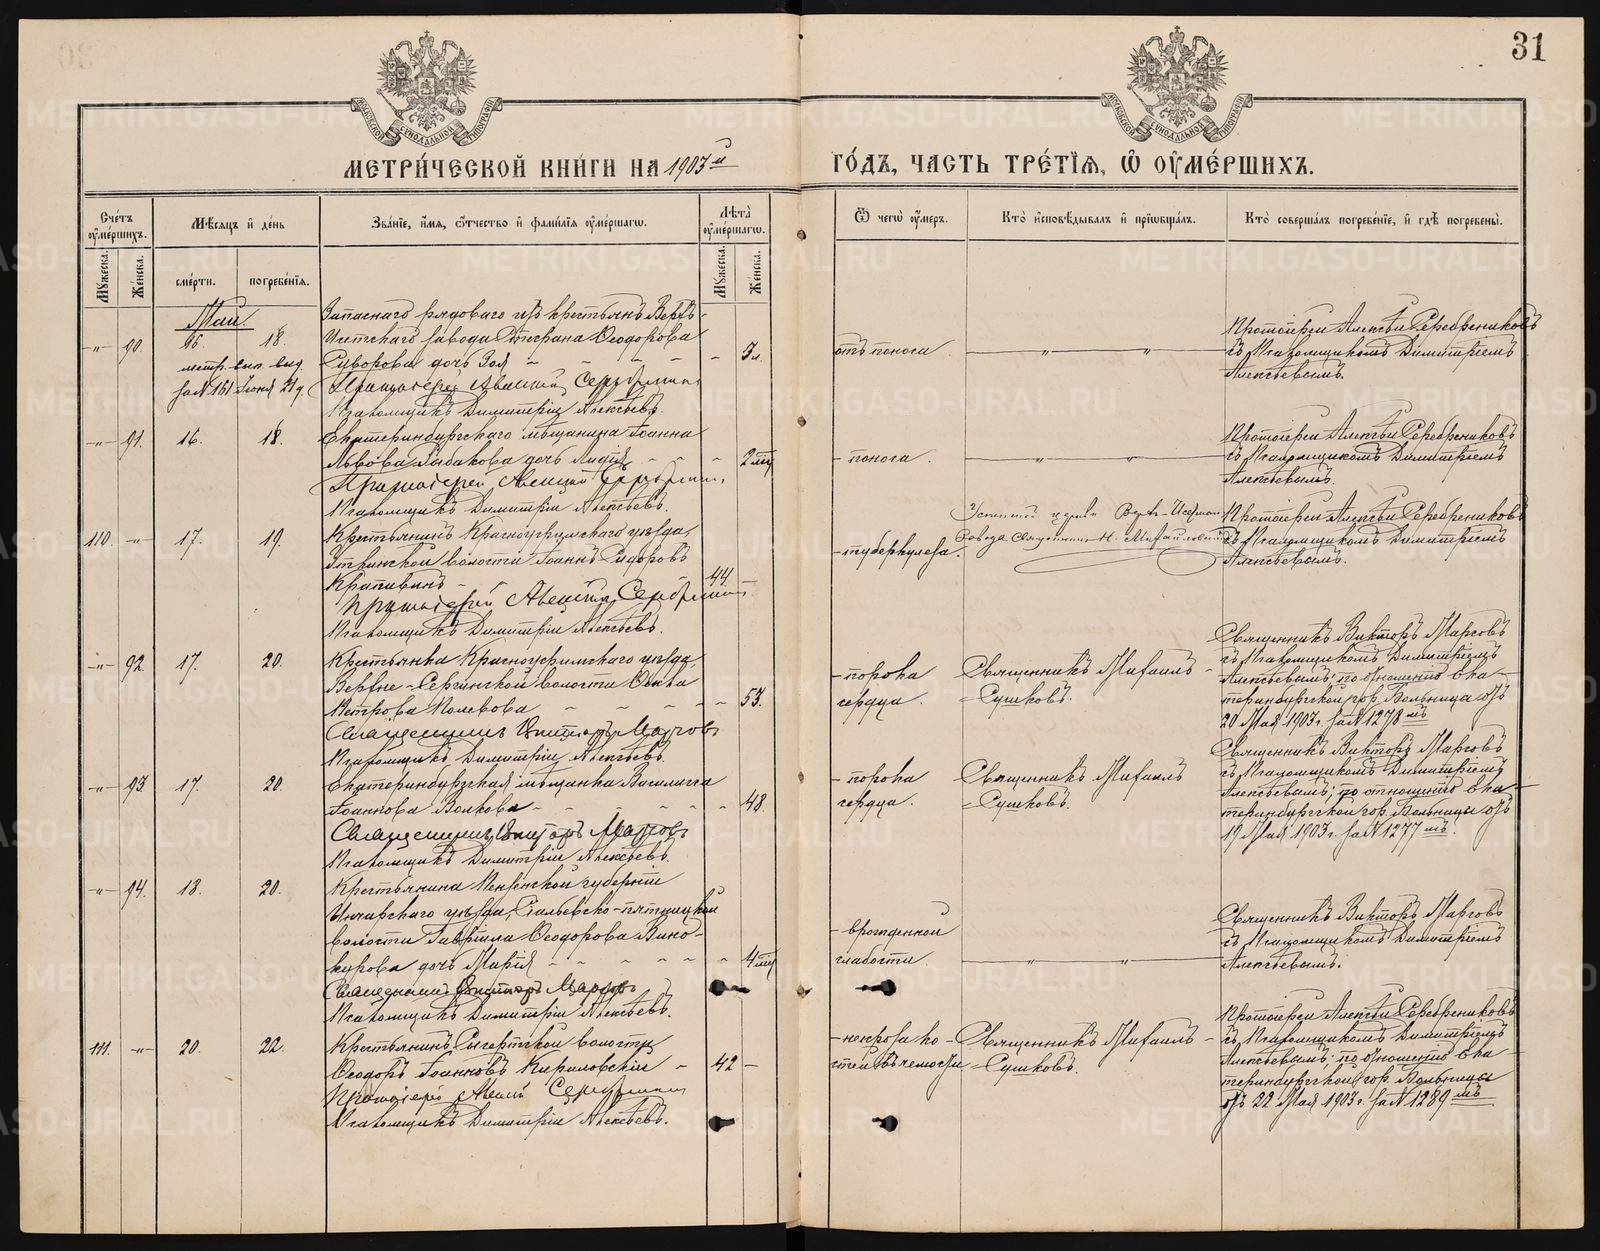 31
МЕТРИ́ЧЕСКОЙ КНИ́ГИ НА 1903 й
ГО́ДЪ, ЧАСТЬ ТРЕ́ТІѦ, Ѡ ОУМЕ́РШИХЪ.
Сче́тъ оуме́ршихъ.
Мужеска.
Же́нска.
Мѣсѧцъ и де́нь
сме́рти.
погребе́нїѧ.
Зва́нїе, и́мѧ, о́тчество и фами́лїѧ оуме́ршагѡ.
Лѣта̀ оуме́ршагѡ.
Мужеска.
Же́нска.
Ѿ чегѡ̀ оу́меръ.
Кто̀ исповѣ́дывалъ и прїѡбща́лъ.
Кто̀ соверша́лъ погребе́нїе, и гдѣ̀ погребены̀.
Май.
Запаснаго рядоваго изъ крестьянъ Верхъ-
Исетскаго завода Ѳеодорова
Суворова дочь Зоя
90. 16. 18.
метр. вып. выд.
за № 161 Іюня 21 д.
Протоіерей Алексій Серебренниковъ
Псаломщикъ Димитрій Алексѣевъ.
3 л.
отъ поноса
Протоіерей Алексѣй Серебрениковъ
съ Псаломщикомъ Димитріемъ
Алексѣевымъ.
91. 16. 18.
Екатеринбургскаго мѣщанина Іоанна
Львова Рыбакова дочь Лидія
Протоіерей Алексій Серебренниковъ
Псаломщикъ Димитрій Алексѣевъ.
2 мц
- поноса.
Протоіерей Алексѣй Серебрениковъ
съ Псаломщикомъ Димитріемъ
Алексѣевымъ.
110. 17. 19.
Крестьянинъ Красноуфимскаго уѣзда,
Уткинской волости Іоаннъ Сидоровъ
Крапивинъ
Протоіерей Алексій Серебренниковъ
Псаломщикъ Димитрій Алексѣевъ.
44
- туберкулеза.
Успенской церкви Верхъ-Исетскаго
завода Священникъ Н. Михайловскій
Протоіерей Алексѣй Серебрениковъ
съ Псаломщикомъ Димитріемъ
Алексѣевымъ.
92. 17. 20.
Крестьянка Красноуфимскаго уѣзда,
Верхне-Сергинской волости Ѳекла
Петрова Полевова
Священникъ Викторъ Марсовъ
Псаломщикъ Димитрій Алексѣевъ.
53.
- порока
сердца.
Священникъ Михаилъ
Сушковъ.
Священникъ Викторъ Марсовъ
съ Псаломщикомъ Димитріемъ
Алексѣевымъ; по отношенію Ека-
теринбургской гор. Больницы отъ
20 Мая 1903 г. за № 1278 мъ
93 17. 20.
Екатеринбургская мѣщанка Василисса
Іоаннова Волкова
Священникъ Викторъ Марсовъ
Псаломщикъ Димитрій Алексѣевъ.
48.
- порока
сердца.
Священникъ Михаилъ
Сушковъ.
Священникъ Викторъ Марсовъ
съ Псаломщикомъ Димитріемъ
Алексѣевымъ; по отношенію Ека-
теринбургской гор. Больницы отъ
19 Мая 1903 г. за № 1277 мъ.
94. 18. 20.
Крестьянина Пензенской губерніи
Инсарскаго уѣзда,
волости Гавріила Ѳеодорова Вино-
курова дочь Марія
Священникъ Викторъ Марсовъ
Псаломщикъ Димитрій Алексѣевъ.
4 мц
- врожденной
слабости.
Священникъ Викторъ Марсовъ
съ Псаломщикомъ Димитріемъ
Алексѣевымъ.
111. 20. 22.
Крестьянинъ Сысертской волости
Ѳеодоръ Іоанновъ Кириловскій
Протоіерей Алексій Серебренниковъ
Псаломщикъ Димитрій Алексѣевъ.
42
- некроза ко-
стей челюсти
Священникъ Михаилъ
Сушковъ.
Протоіерей Алексѣй Серебрениковъ
съ Псаломщикомъ Димитріемъ
Алексѣевымъ; по отношенію Ека-
теринбургской гор. Больницы
отъ 22 Мая 1903 г. за № 1289 мъ